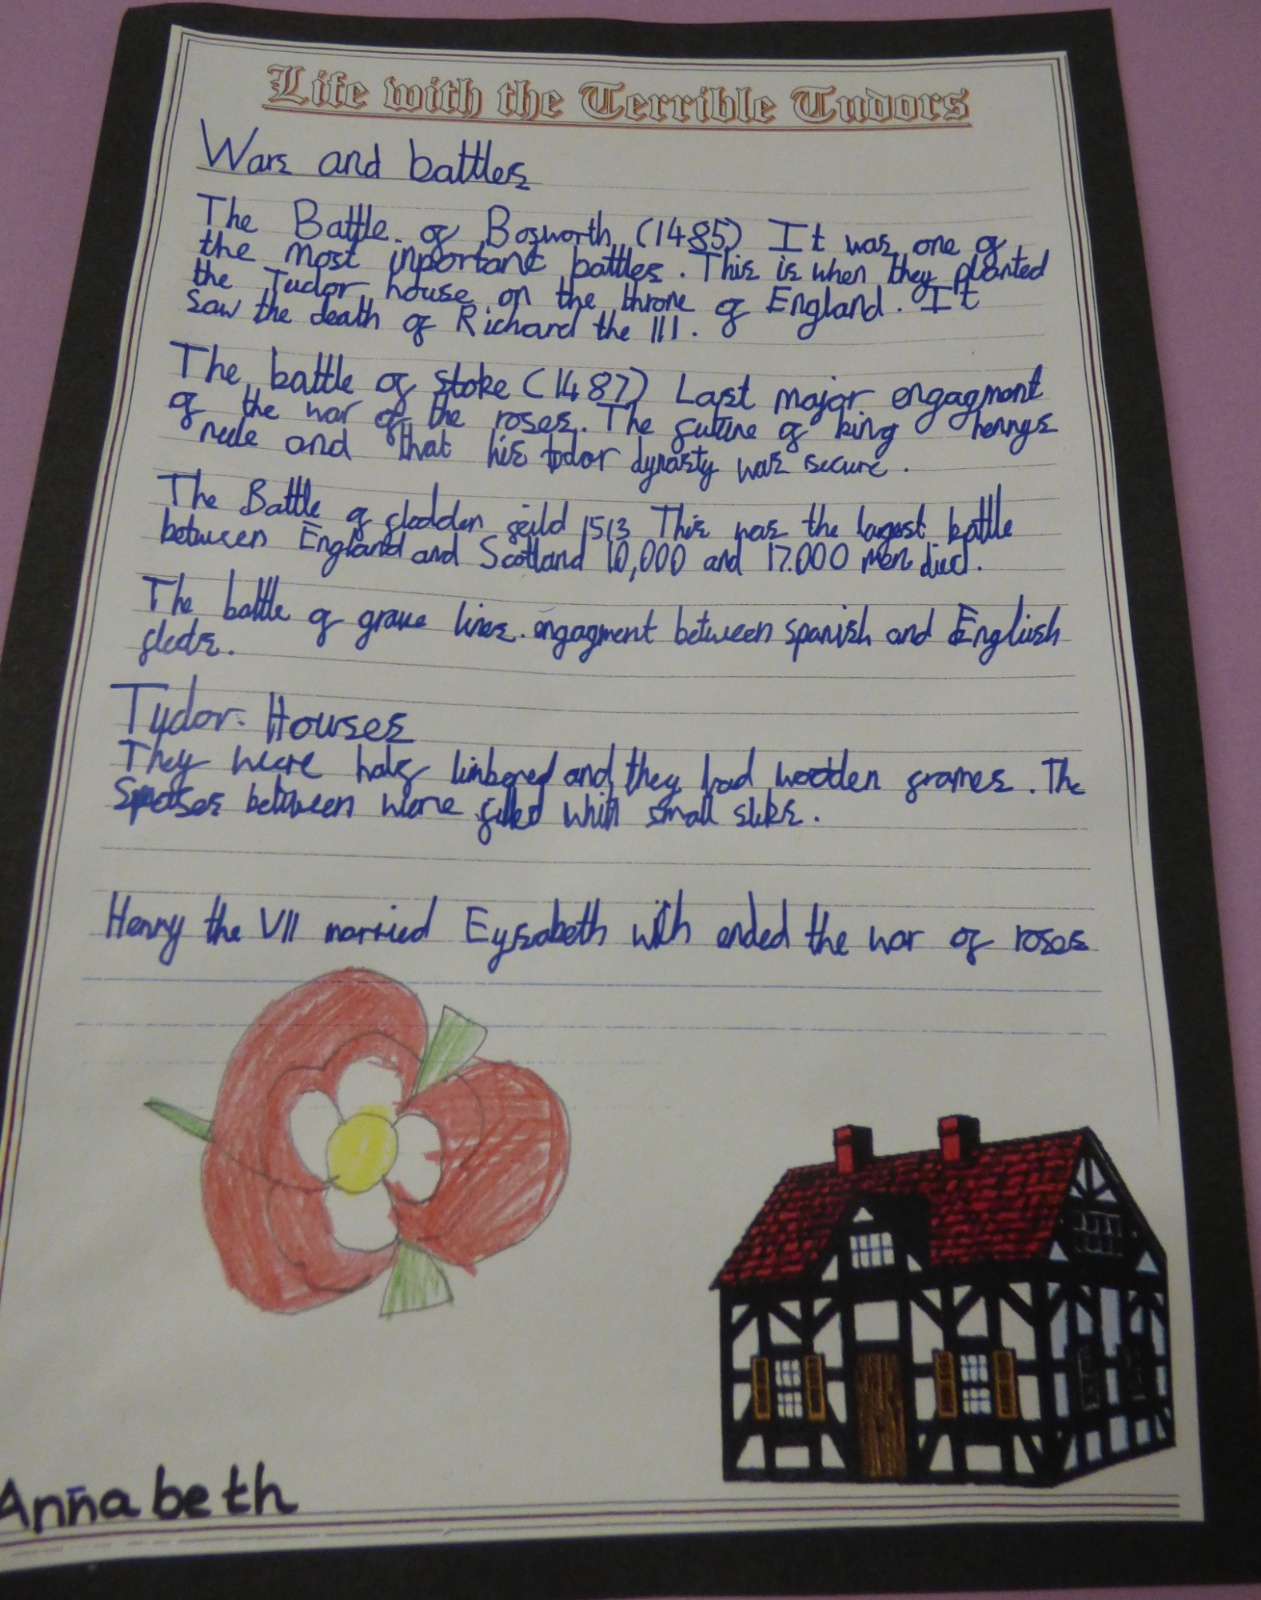 Life with the Terrible Tudors
Wars and battles
The Battle of Bosworth (1485) It was one of
the most inportant battles. This is when they planted
the Tudor house on the throne of England. It
saw the death of Richard the III.
The battle of stoke (1487) Last major engagment
of the war of the roses. The future of king henrys
rule and that his tudor dynasty was secure.
The Battle of flodden feild 1513 This was the largest battle
between England and Scotland 10,000 and 17.000 men died.
The battle of grave lines. engagment between spanish and English
fleets.
Tudor Houses
They were half timbered and they had wooden frames. The
between were filled with small
Henry the VII married Eyzabeth with ended the war of roses
Annabeth